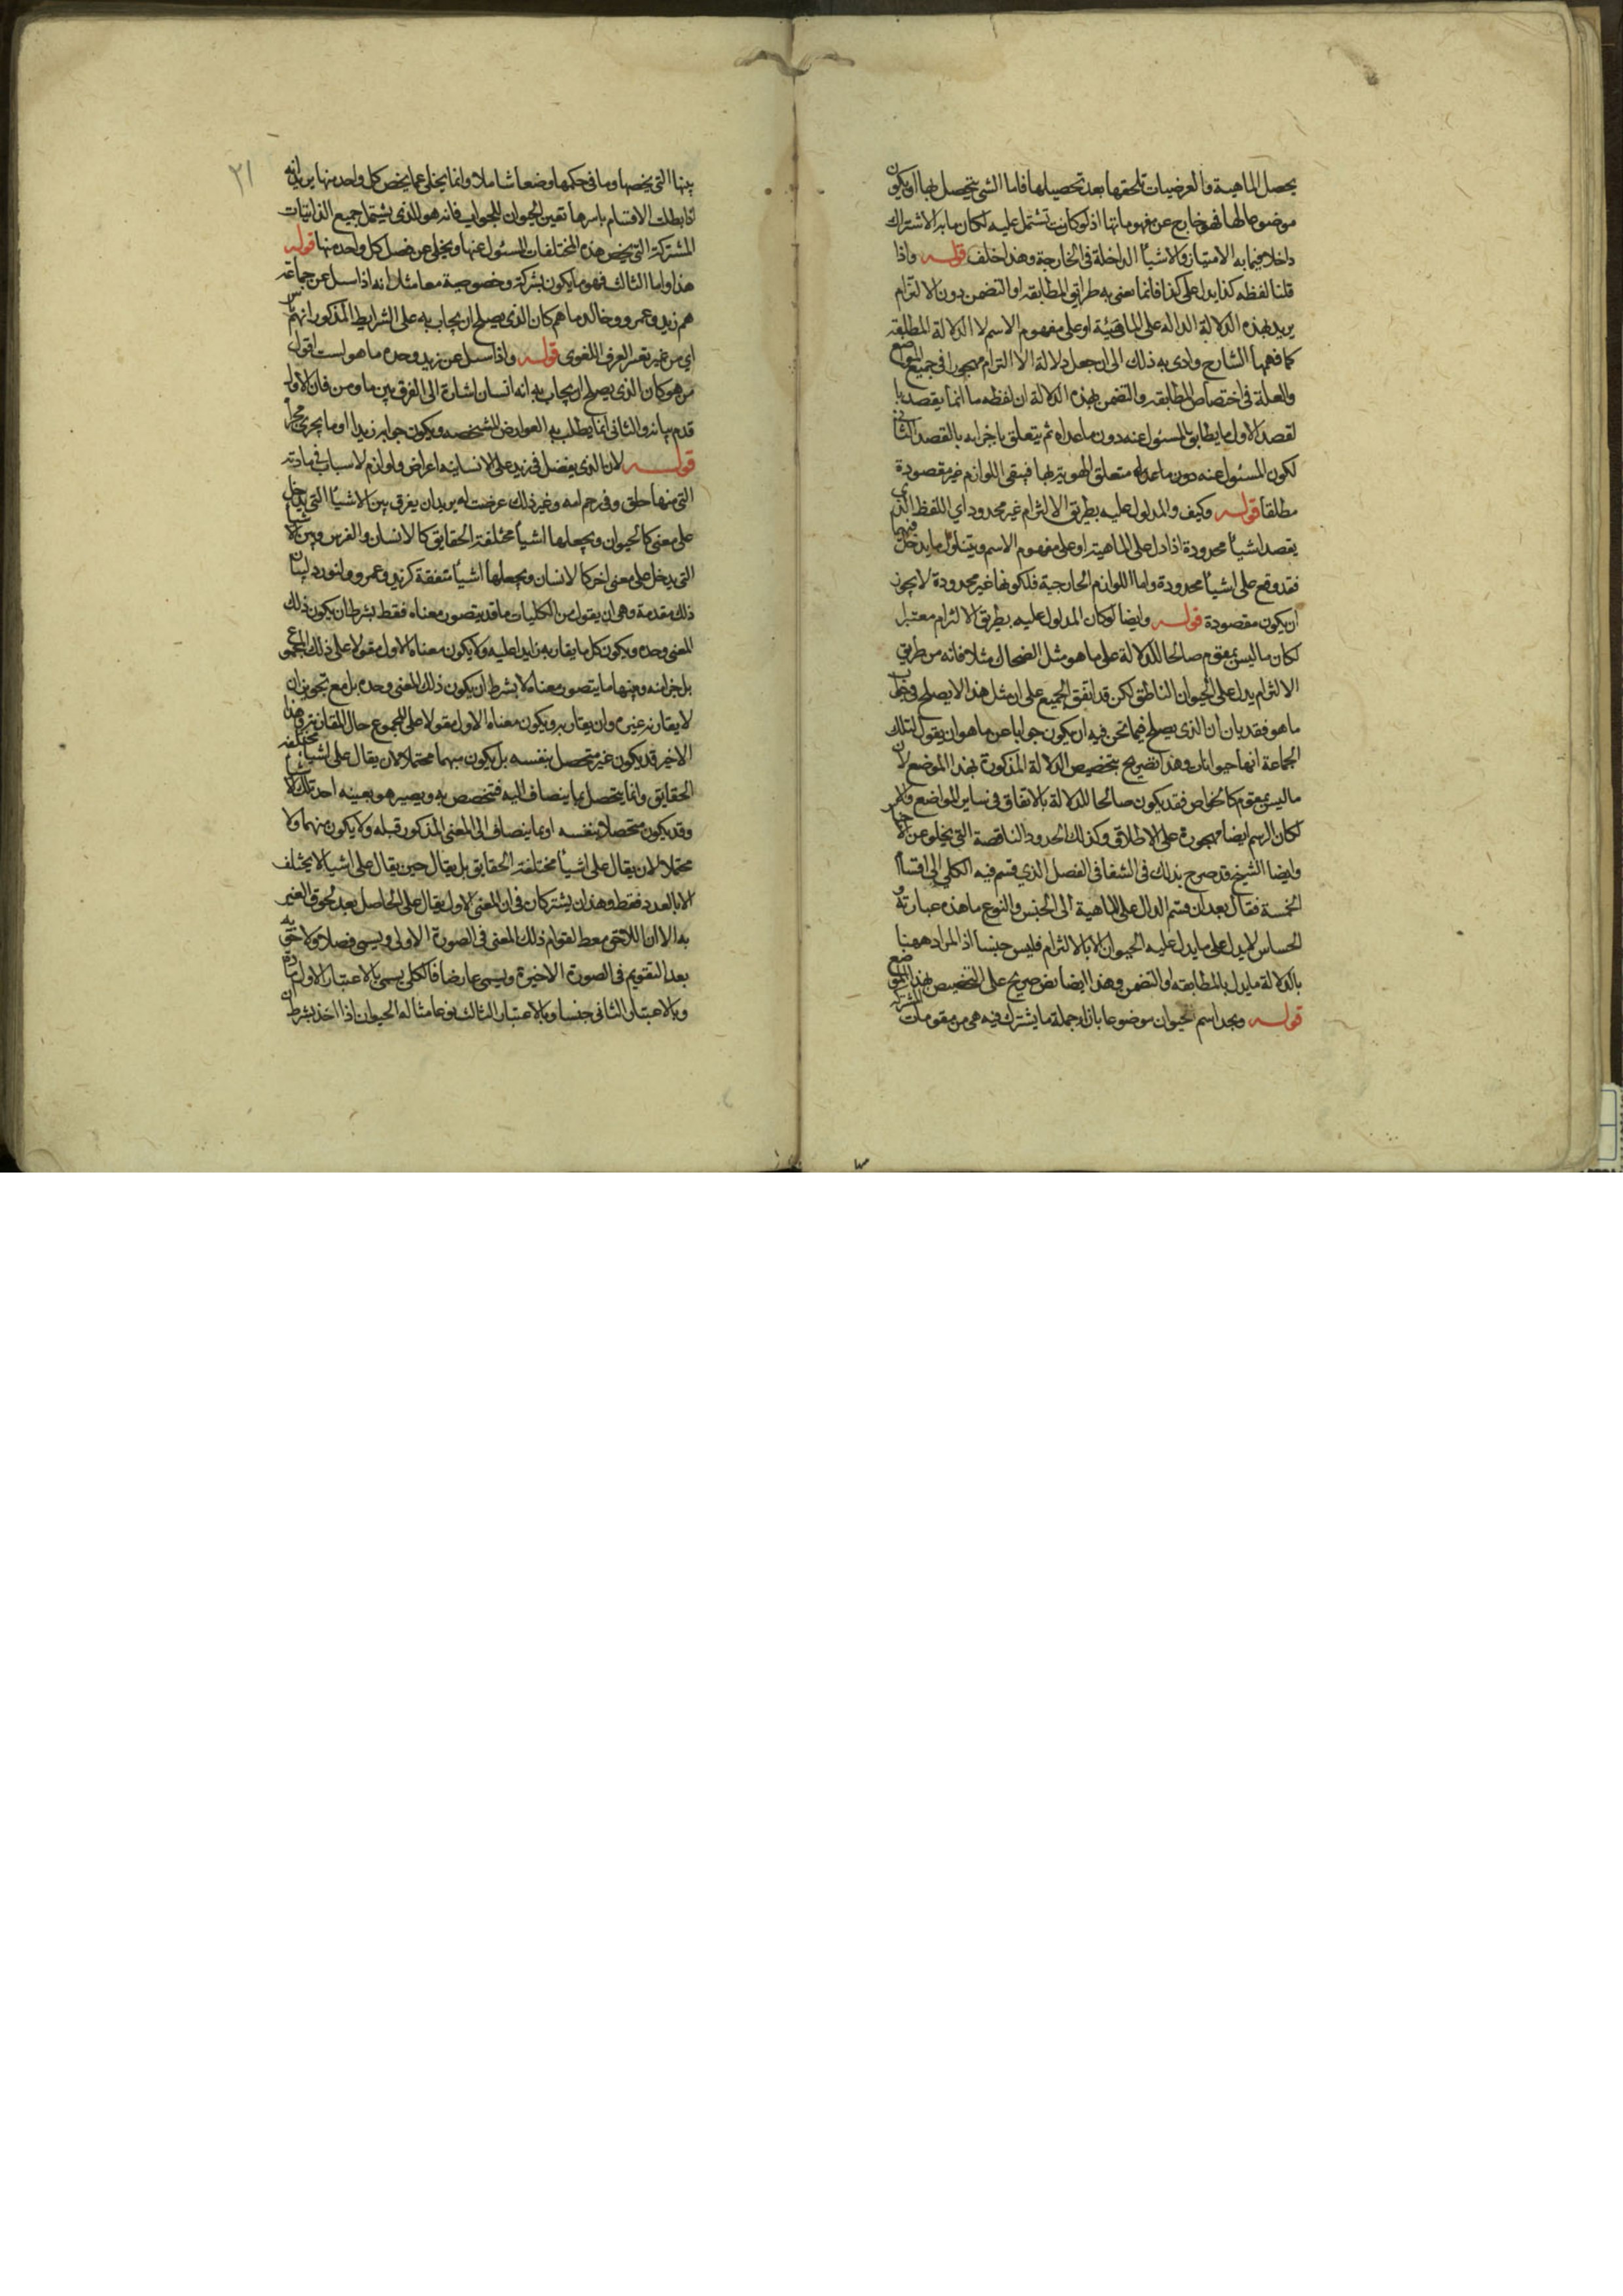 يحصل الماهية والعرضيات تلحقها بعد تحصيلها فاما الشى يتحصل بها او يكون
موضوعا لها فهو خارج عن مفهوماتها اذ لو كانت تشتمل عليه لكان ما به الاشتراك
داخلا فيما به الامتياز والاشيا الداخلة فى الخارجة وهذا خلف قوله واذا
قلنا لفظه كذا يدل على كذا فانما نعنى به طريق المطابقه او التضمن دون الالتزام
يريد بهذه الدلالة الداله على الماهية او على مفهوم الاسم لا الدلالة المطلقه
كما فهمها الشارح وادى به ذلك الى ان جعل دلالة الالتزام مهجورا فى جميع المواضع
والعلة فى اختصاص المطابقه والتضمن بهذه الدلالة ان لفظه ما انما يقصد بها
لقصد الاول ما يطابق المسئول عنه دون ما عداه ثم يتعلق باجزايه بالقصد الثانى
لكون المسئول عنه دون ما عداه متعلق الهوية بها فيبقى اللوازم غير مقصودة
مطلقا قوله وكيف والمدلول عليه بطريق الالتزام غير محدود اي اللفظ الذى
يقصد اشيا محدودة اذا دل على الماهية او على مفهوم الاسم ويتناول ما يدخل فيهما
فقد وقع على اشيا محدودة واما اللوازم الخارجية فلكونها غير محدودة لا يجوز
ان يكون مقصودة قوله وايضا لو كان المدلول عليه بطريق الالتزام معتبرا
لكان ما ليس بمقوم صالحا للدلالة على ما هو مثل الضحاك مثلا فانه من طريق
الالتزام يدل على الحيوان الناطق لكن قد اتفق الجميع على ان مثل هذا لا يصلح فى جواب
ما هو فقد بان ان الذى يصلح فيما نحن فيه ان يكون جوابا عن ما هو ان يقول لتلك
الجماعة انها حيوانات وهذا تصريح بتخصيص الدلالة المذكورة بهذا الموضع لان
ما ليس بمقوم كالخواص فقد يكون صالحا للدلالة بالاتفاق فى ساير المواضع والا
لكان الرسم ايضا مهجورة على الاطلاق وكذلك الحدود الناقصة التى يخلو عن الاجناس
وايضا الشيخ قد صرح بذلك فى الشفا فى الفصل الذي قسم فيه الكلى الى اقسام
الخمسة فقال بعد ان قسم الدال على الماهية الى الجنس والنوع ما هذه عبارته و
الحساس لا يدل على ما يدل عليه الحيوان الا بالالتزام فليس جنسا اذ المراد ههنا
بالدلالة ما يدل بالمطابقه او التضمن وهذا ايضا نص صريح على التخصيص بهذا الموضع
قوله ونجد اسم الحيوان موضوعا بازاء جملة ما يشترك فيه هى من مقومات المشتركه
٢١
بينها التى يخصها وما فى حكمها وضعا شاملا وانما يخلى عما يخص كل واحد منها يريد انه
اذا بطلت الاقسام باسرها تعين الحيوان للجواب فانه هو الذى يشتمل جميع الذاتيات
المشتركة التى يخص هذه المختلفات المسئول عنها ويخلى عن فصل كل واحد منها قوله
هذا واما الثالث فهو ما يكون بشركة وخصوصية معا مثلا انه اذا سيل عن جماعة
هم زيد وعمرو وخالد ما هم كان الذى يصلح ان يجاب به على الشرايط المذكور انهم ناس
اي من غير تغير العرف اللغوى قوله واذا سيل عن زيد وحده ما هو لست اقول
من هو كان الذى يصلح ان يجاب به انه انسان اشارة الى الفرق بين ما ومن فان الاول
قدم بيانه والثانى انما يطلب به العوارض المشخصه ويكون جوابه زيدا او ما يجرى مجراه
قوله لان الذى يفضل فى زيد على الانسانيه اعراض ولوازم لاسباب فى مادته
التى منها خلق وفى رحم امه وغير ذلك عرضت له يريد ان يفرق بين الاشيا التى يدخل
على معنى كالحيوان ويجعلها اشيا مختلفة الحقايق كالانسان والفرس وبين الاشيا
التى يدخل على معنى اخر كالانسان ويجعلها اشيا متفقة كزيد وعمرو ولنورد لبيان
ذلك مقدمة وهى ان يقول من الكليات ما قد يتصور معناه فقط بشرط ان يكون ذلك
المعنى وحده ويكون كل ما يقارنه زايدا عليه ولا يكون معناه الاول مقولا على ذلك المجموع
بل جزا منه ومنها ما يتصور معناه لا بشرط ان يكون ذلك المعنى وحده بل مع تجويز ان
لا يقارنه غيره وان يقارنه ويكون معناه الاول مقولا على المجموع حال المقارنة وهذا
الاخير قد يكون غير متحصل بنفسه بل يكون مبهما محتملا لان يقال على اشيا مختلفه
الحقايق وانما يتحصل بما ينضاف اليه فتخصص به ويصير هو بعينه احد تلك الاشيا
وقد يكون متحصلا بنفسه او بما ينضاف الى المعنى المذكور قبله ولا يكون مبهما ولا
محتملا لان يقال على اشيا مختلفة الحقايق بل يقال حين يقال على اشيا لا يختلف
الا بالعدد فقط وهذان يشتركان فى ان المعنى الاول يقال على الحاصل بعد لحوق الغير
به الا ان اللاحق معط لقوام ذلك المعنى فى الصورة الاولى ويسمى فصلا ولاحق به
بعد التقويم فى الصورة الاخيرة ويسمى عارضا فالكلى يسمى بالاعتبار الاول مادة
وبالاعتبار الثانى جنسا وبالاعتبار الثالث نوعا مثاله الحيوان اذا اخذ بشرط ان